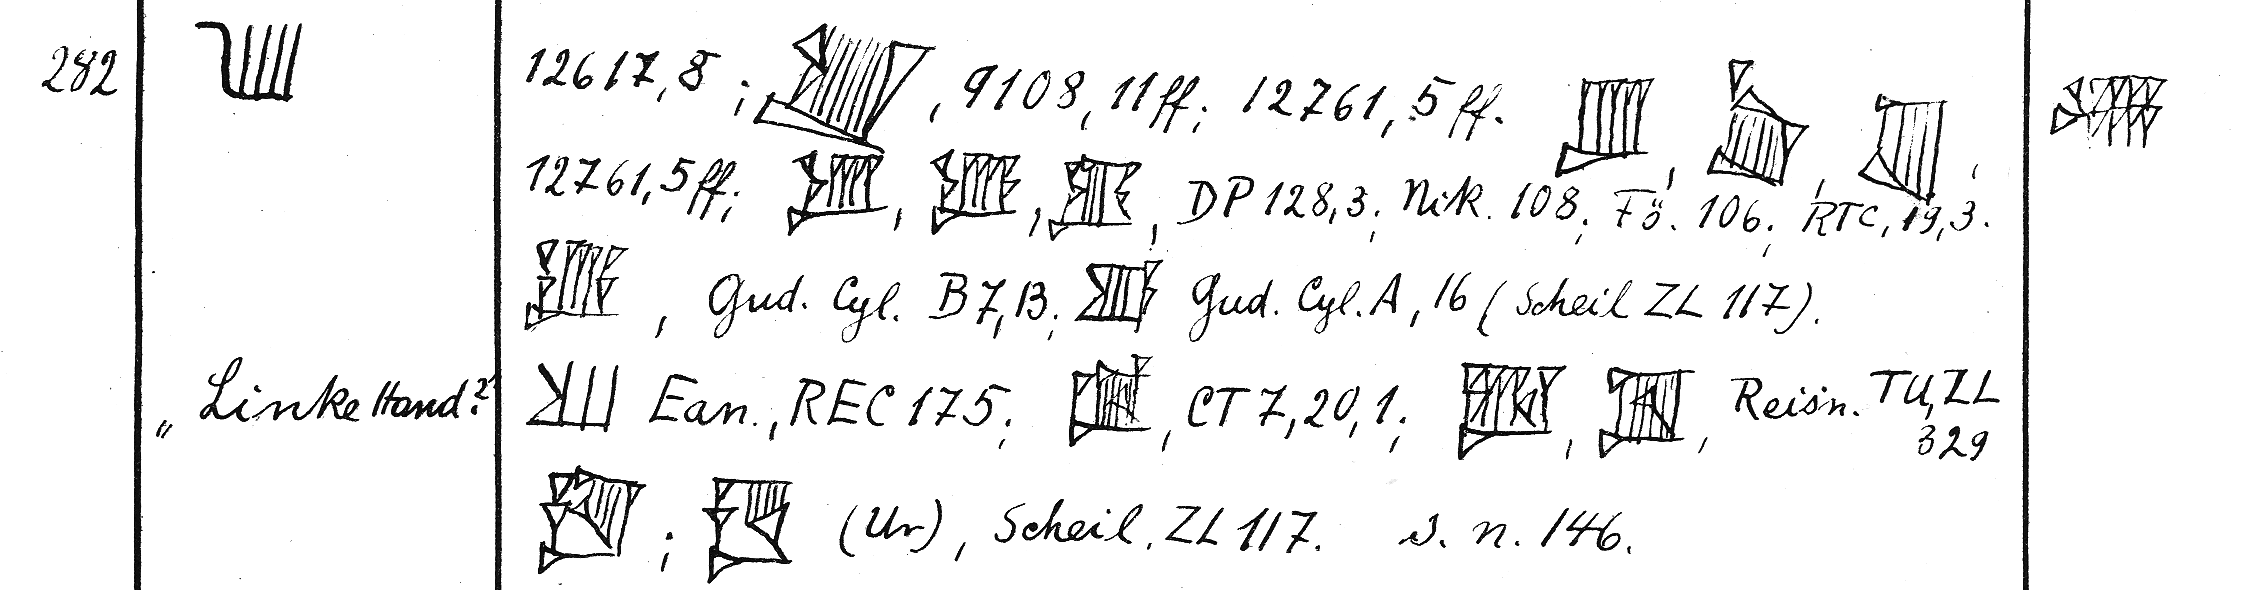 282
12617,8; , 9108, 11ff; 12761, 5ff. , , ;
12761, 5ff; , , , DP 128,3; Nik. 108; Fö. 106; RTC, 19,3.
, Gud. Cyl. B 7,13; Gud. Cyl. A, 16 (Scheil ZL 117).
„Linke Hand?" Ean., REC 175; , CT 7,20,1; , , Reisn. TU, ZL
329
; (Ur), Scheil. ZL 117. s. n. 146.